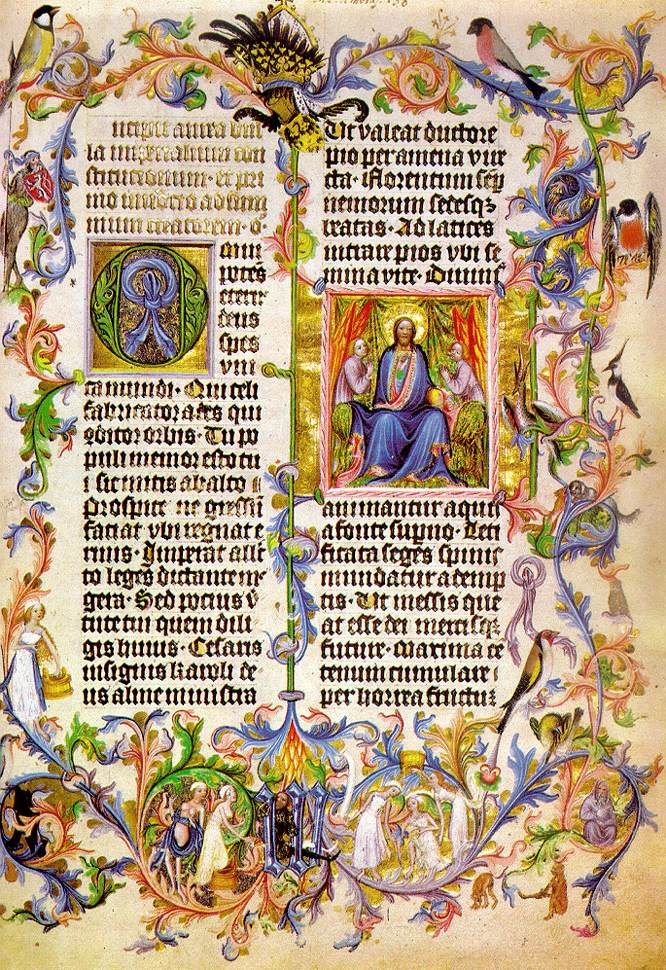 ncipit aurea bul
la imperialium con
stitucionum · et pri
mo invocco ad sum
mum creatorem · O
mni
potēs
eterne
deus
spes
vni
ca mundi · Qui celi
fabricator ades qui
ɔditor orbis · Tu po
puli memor esto tu
i sic mitis ab alto
Prospice ne gressū
faciat vbi regnat e
rinis · Imperat alle
to leges dictante m
gera · Sed pocius v
tute tui quem dili
gis huius · Cesaris
insignis karoli de
us alme ministra
Vt valeat ductore
pio per amena vire
cta · Florentum sep
nemorum sedesq3
beatas · Ad latices
intrare pios vbi se
mina vite · Diuinis
animantur aquis
a fonte supno · Leti
ficata seges spinis
mundatur ademp
tis · Vt messis que
at esse dei mercisq3
future · Maxima ce
tenum cumulare
per horrea fructū